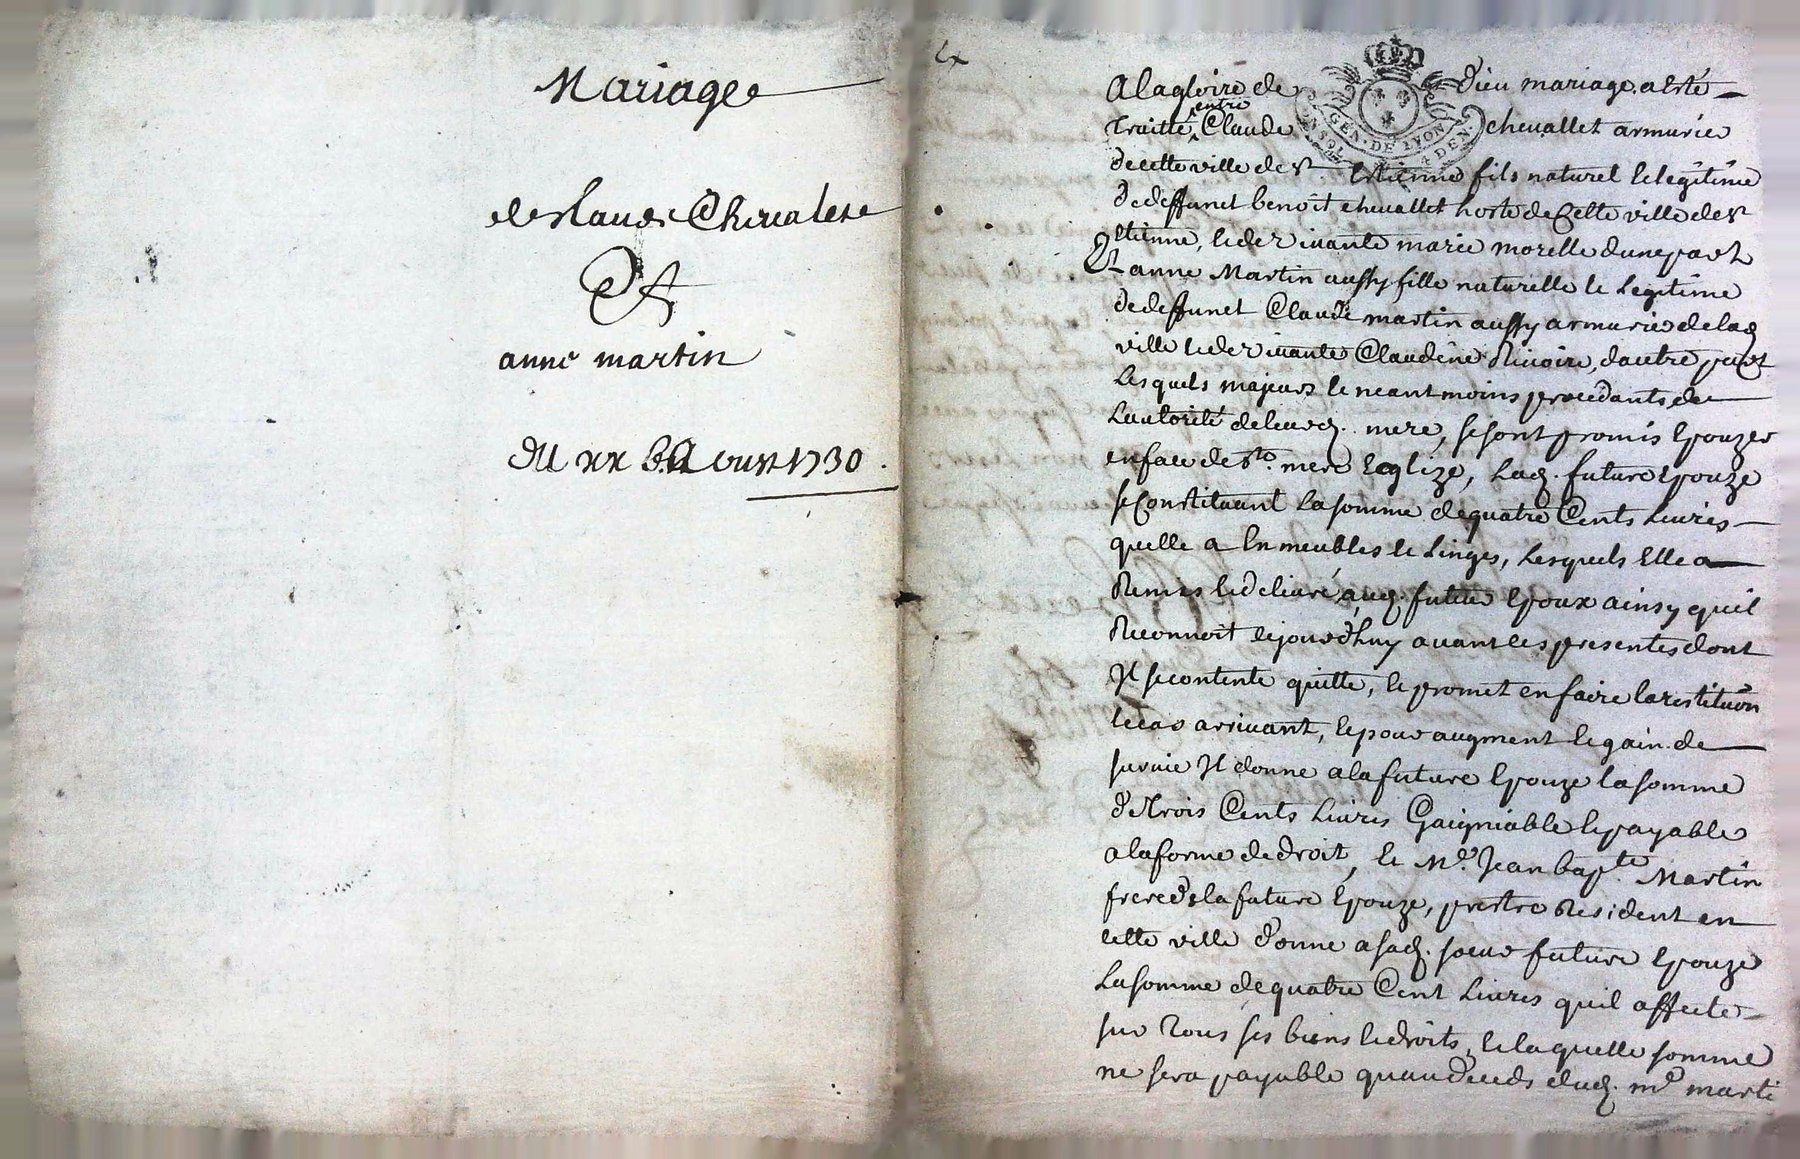 Mariage
de Claude Chevalete
Et
anne martin
du xx Aoust 1730.
A la gloire de Dieu mariage a esté
GEN. DE LYON
4 DEN
traitté entre Claude chevallet armurier
de cette ville de St. Estienne fils naturel le legitime
de deffunct benoit chevallet hoste de Cette ville de St
Etienne, le de vivante marie morelle dune part
Et anne Martin aussy fille naturelle le Legitime
de deffunct Claude martin aussy armurier de lad
ville le de vivante Claudine Rivoire, dautre part
Lesquels majeurs le neantmoins procedants de
Lautorité de leurd. mere, se sont promis Epouzer
en face de Ste. mere Eglize, Lad. future Epouze
se Constituant La somme de quatre Cents Livres
quelle a En meubles le Linges, Lesquels Elle a
Remis le delivré aud. futur Epoux ainsy quil
Reconnoit cejourdhuy avant ces presentes dont
Il se contente quitte, le promet en faire la restituon
le cas arrivant, le pour augment le gain de
survie Il donne a la future Epouze la somme
de trois Cents Livres Gaigniable le payable
a la forme de droit, le Me. Jean bapte Martin
frere de la future Epouze, prestre Resident en
cette ville donne a sad. soeur future Epouze
La somme de quatre Cent Livres quil affecte
sur Tous ses biens le droits, le laquelle somme
ne sera payable quau deceds dud. mr marti